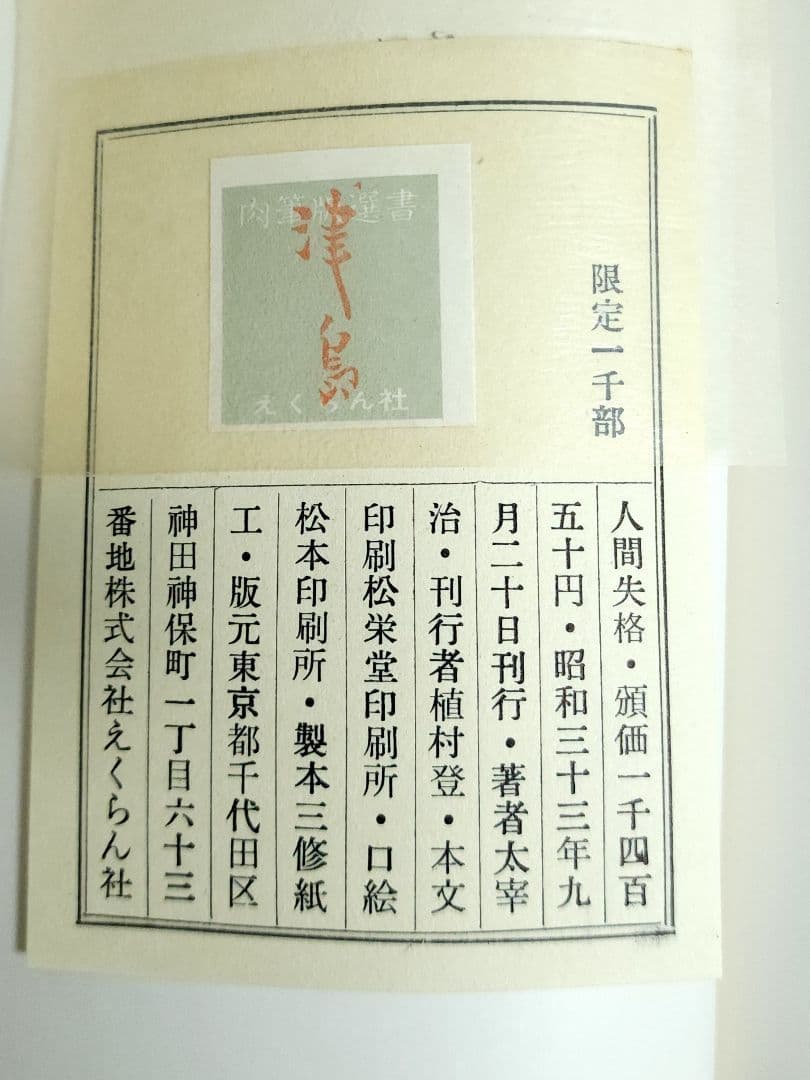 限定一千部
肉筆版選書
津島
えくらん社
人間失格・頒価一千四百
五十円・昭和三十三年九
月二十日刊行・著者太宰
治・刊行者植村登・本文
印刷松栄堂印刷所・口絵
松本印刷所・製本三修紙
工・版元東京都千代田区
神田神保町一丁目六十三
番地株式会社えくらん社